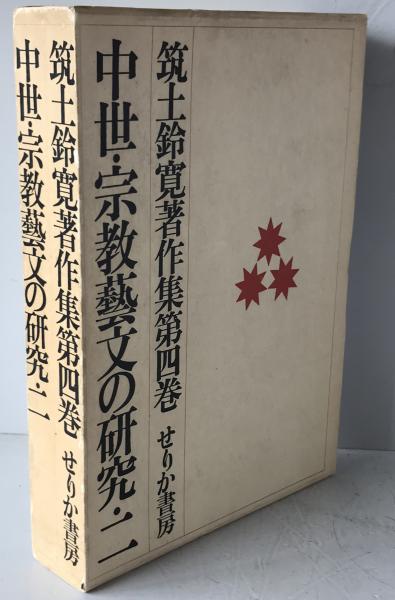 筑土鈴寛著作集第四巻 せりか書房
中世・宗教藝文の研究・二
筑土鈴寛著作集第四巻 せりか書房
中世・宗教藝文の研究・二